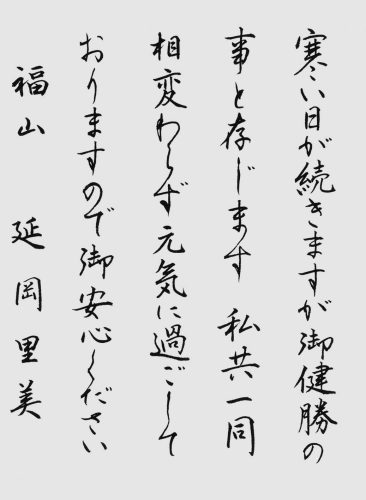 寒い日が続きますが御健勝の
事と存じます 私共一同
相変わらず元気に過ごして
おりますので御安心ください
福山 延岡里美